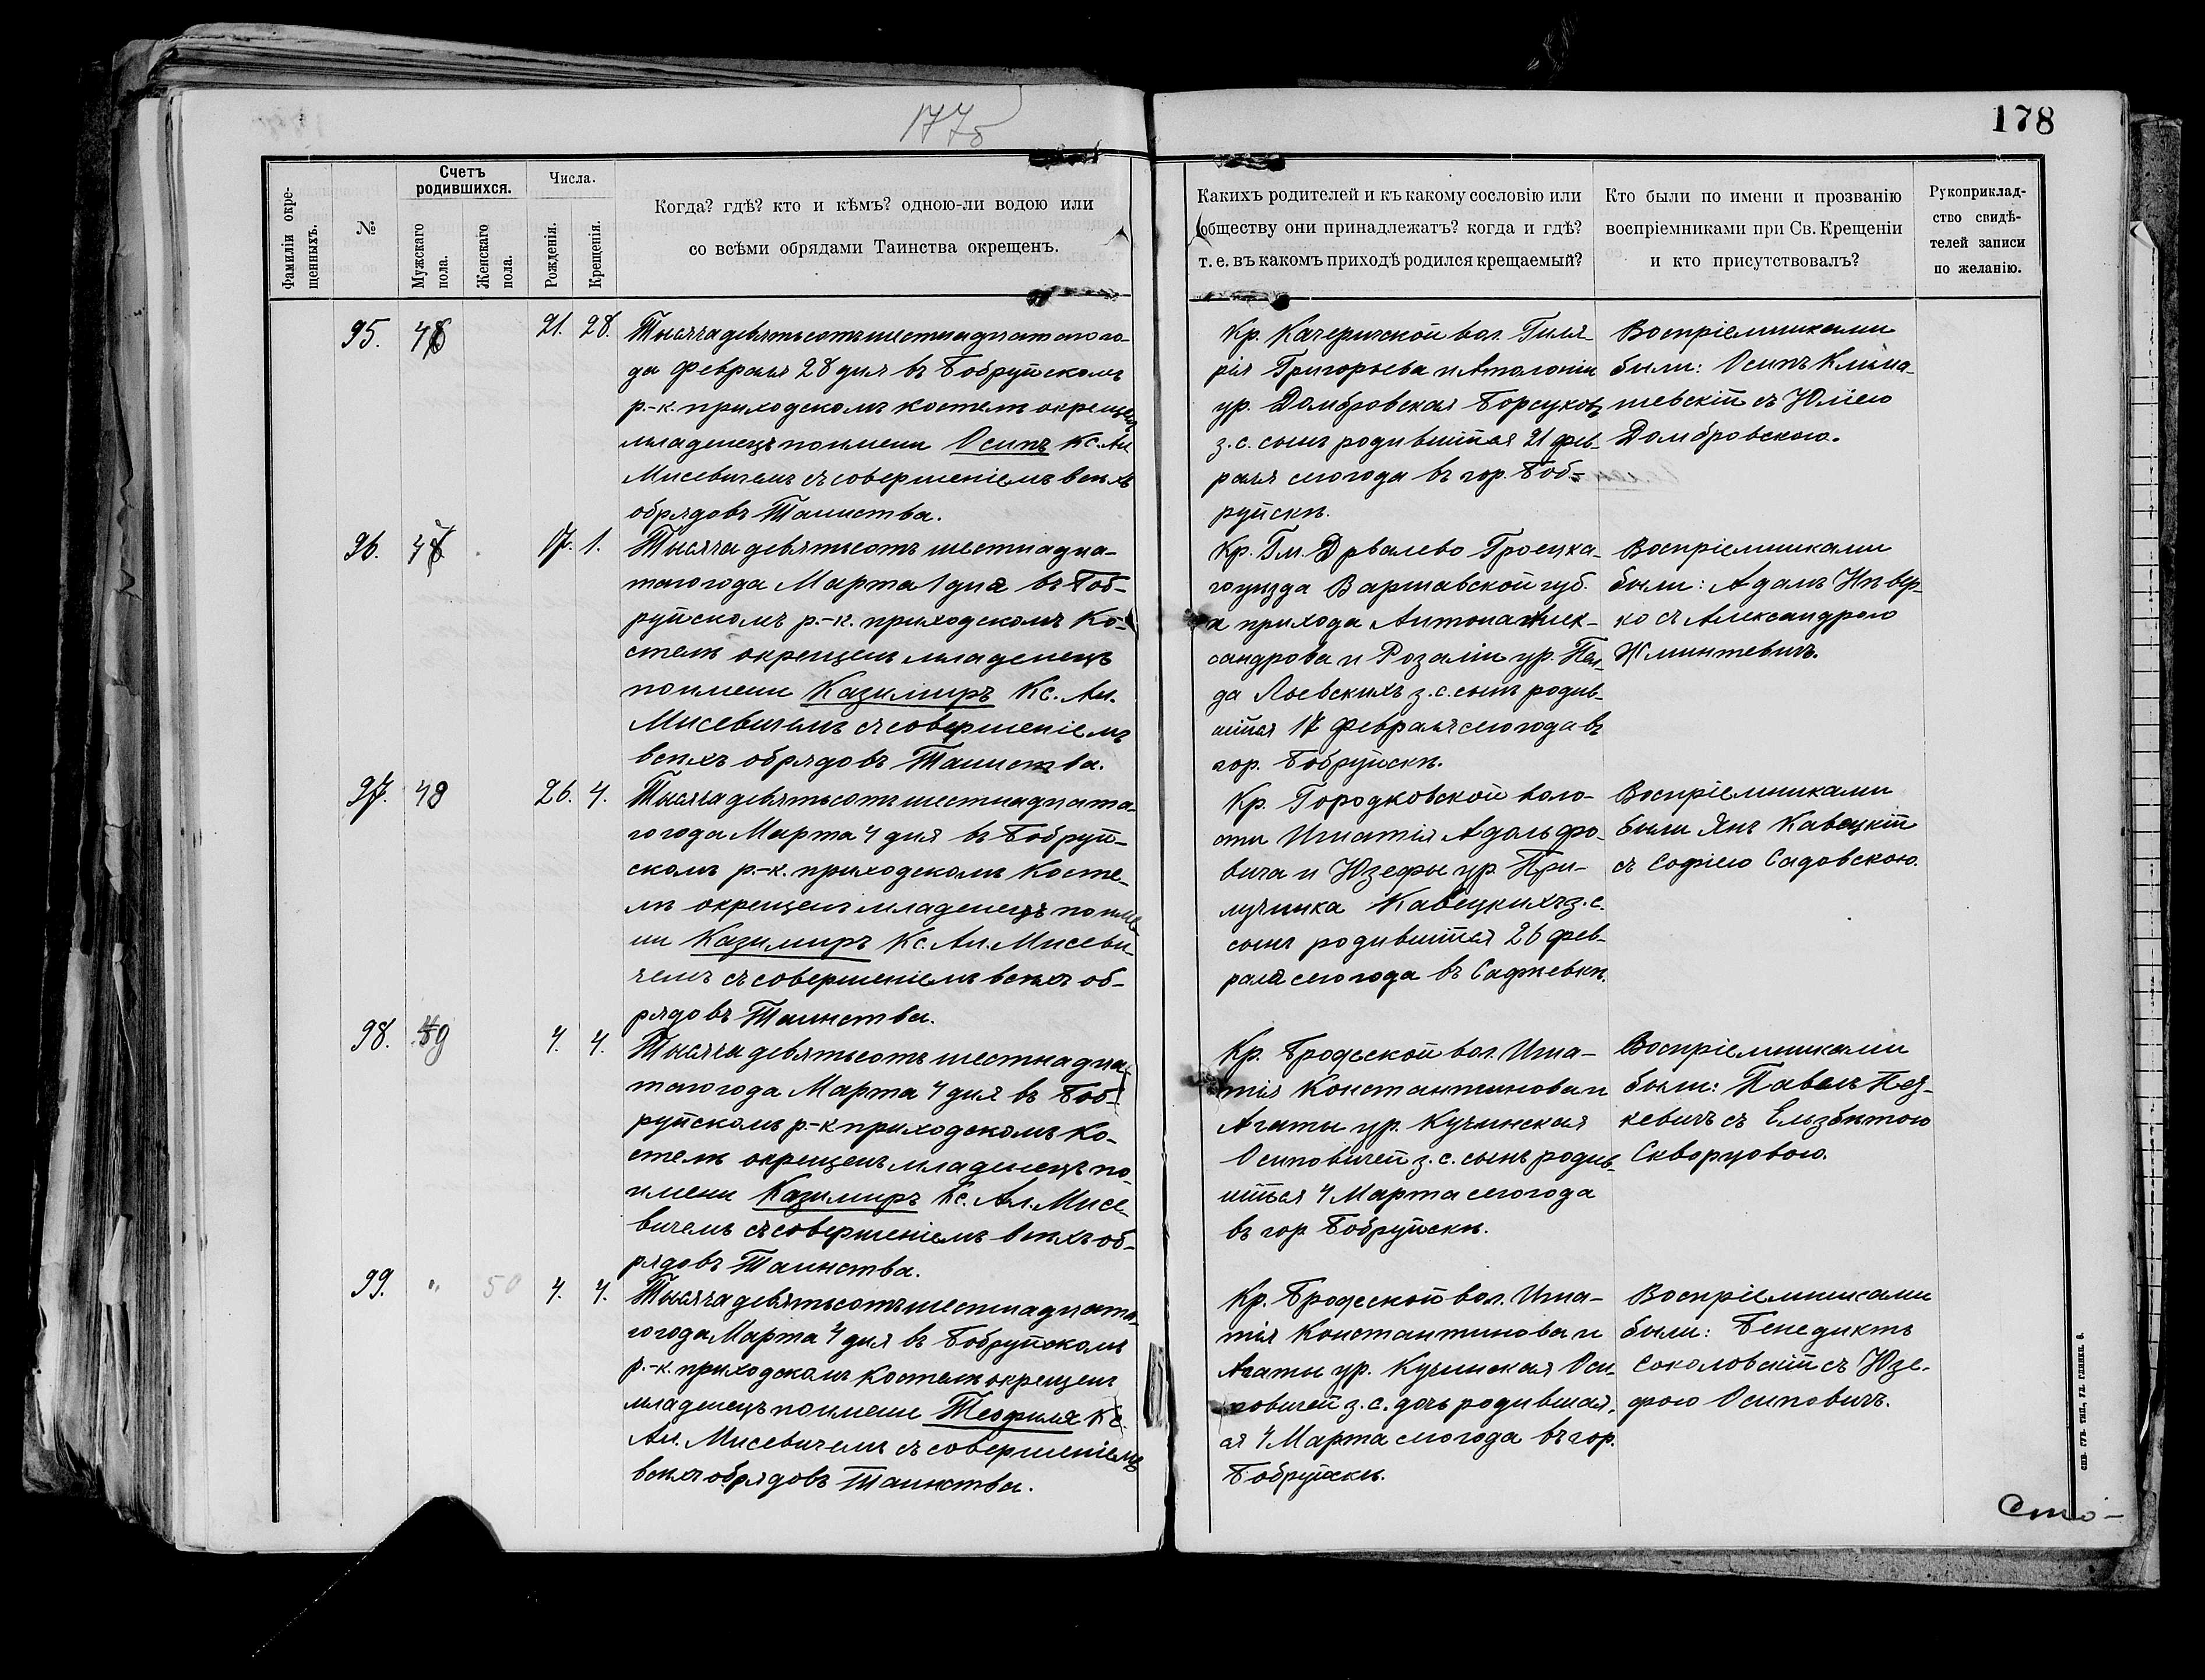 177б
178
Фамиліи окре-
щенныхъ.
№
Счетъ
родившихся.
Мужскаго
пола.
Женскаго
пола.
Числа.
Рожденія.
Крещенія.
Когда? гдѣ? кто и кѣмъ? одною-ли водою или
со всѣми обрядами Таинства окрещенъ.
Какихъ родителей и къ какому сословію или
обществу они принадлежатъ? когда и гдѣ?
т. е. въ какомъ приходѣ родился крещаемый?
Кто были по имени и прозванію
воспріемниками при Св. Крещеніи
и кто присутствовалъ?
Рукоприклад-
ство свидѣ-
телей записи
по желанію.
95. 21. 28.
Тысяча девятьсотъ шестнадцатаго го-
да Февраля 28 дня въ Бобруйскомъ
р.-к. приходскомъ костелѣ окрещенъ
младенецъ по имени Осипъ Кс. Ал.
Мисевичемъ съ совершеніемъ всѣхъ
обрядовъ Таинства.
Кр. Качеричской вол. Гиля-
рія Григорьева и Аполоніи
ур. Домбровская Борсуковъ
з. с. сынъ родившійся 21 фев-
раля сего года въ гор. Боб-
руйскѣ.
Воспріемниками
были: Осипъ Клима-
шевскій съ Юліею
Домбровскою.
96. 17. 1.
Тысяча девятьсотъ шестнадца-
таго года Марта 1 дня въ Боб-
руйскомъ р.-к. приходскомъ Ко-
стелѣ окрещенъ младенецъ
по имени Казимиръ Кс. Ал.
Мисевичемъ съ совершеніемъ
всѣхъ обрядовъ Таинства.
Кр. Гм. Дрвалево Гроецка-
го уѣзда Варшавской губ.
и прихода Антона Алек-
сандрова и Розаліи ур.
да Лоевскихъ з. с. сынъ родив-
шійся 17 Февраля сего года въ
гор. Бобруйскѣ.
Воспріемниками
были: Адамъ
ко съ Александрою
Жминтевичъ.
97. 48 26. 4.
Тысяча девятьсотъ шестнадцата-
го года Марта 4 дня въ Бобруй-
скомъ р.-к. приходскомъ Косте-
лѣ окрещенъ младенецъ по име
ни Казимиръ Кс. Ал. Мисеви-
чемъ съ совершеніемъ всѣхъ об-
рядовъ Таинства.
Кр. Городковской воло-
сти Игнатія Адольфо-
вича и Юзефы ур. При-
лучинка Кавецкихъ з. с.
сынъ родившійся 26 фев-
раля сего года въ
Воспріемниками
были Янъ Кавецкій
съ Софіею Садовскою.
98. 49 4. 4.
Тысяча девятьсотъ шестнадца-
таго года Марта 4 дня въ Боб-
руйскомъ р.-к приходскомъ Ко-
стелѣ окрещенъ младенецъ по
имени Казимиръ Кс. Ал. Мисе-
вичемъ съ совершеніемъ всѣхъ об-
рядовъ Таинства.
Кр. Бродеской вол. Игна-
тія Константинова и
Агаты ур. Кучинская
Осиповичей з. с. сынъ родив-
шійся 4 Марта сего года
въ гор Бобруйскѣ.
Воспріемниками
были: Павелъ
кевичъ съ Елизбѣтою
Скворцовою.
99. " 50 4. 4.
Тысяча девятьсотъ шестнадцата-
го года Марта 4 дня въ Бобруйскомъ
р.-к. приходскомъ Костелѣ окрещенъ
младенецъ по имени Теофиля Кс.
Ал. Мисевичемъ съ совершеніемъ
всѣхъ обрядовъ Таинства.
Кр. Бродеской вол. Игна-
тія Константинова и
Агаты ур. Кучинская Оси-
повичей з. с. дочь родившая-
ся 4 Марта сего года въ гор.
Бобруйскѣ.
Воспріемниками
были: Бенедиктъ
Соколовскій съ Юзе-
фою Осиповичъ.
Сто-